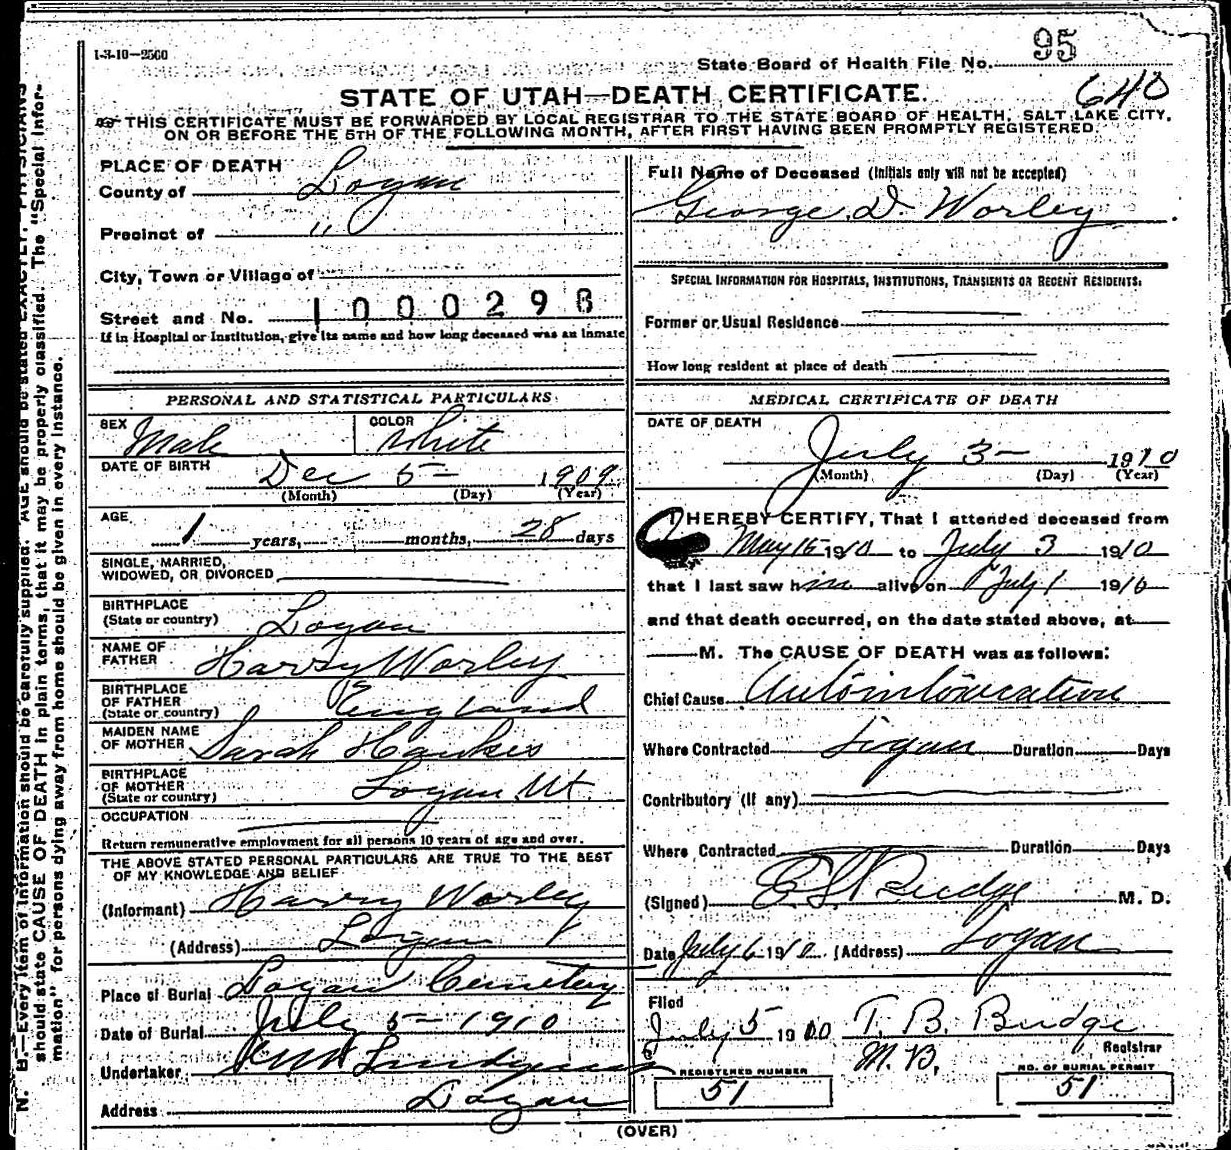 1-3-10-2500
State Board of Health File No. 95
640
STATE OF UTAH—DEATH CERTIFICATE.
THIS CERTIFICATE MUST BE FORWARDED BY LOCAL REGISTRAR TO THE STATE BOARD OF HEALTH, SALT LAKE CITY,
ON OR BEFORE THE 5TH OF THE FOLLOWING MONTH, AFTER FIRST HAVING BEEN PROMPTLY REGISTERED.
PLACE OF DEATH
County of Logan
Precinct of "
City, Town or Village of
Street and No. 1000298
If in Hospital or Institution, give its name and how long deceased was an inmate
Full Name of Deceased (Initials only will not be accepted)
George D. Worley
SPECIAL INFORMATION FOR HOSPITALS, INSTITUTIONS, TRANSIENTS OR RECENT RESIDENTS.
Former or Usual Residence
How long resident at place of death
PERSONAL AND STATISTICAL PARTICULARS
SEX Male COLOR White
DATE OF BIRTH Dec 5 1909
(Month) (Day) (Year)
AGE 1 years, months, 28 days
SINGLE, MARRIED,
WIDOWED, OR DIVORCED
BIRTHPLACE
(State or country) Logan
NAME OF
FATHER Harry Worley
BIRTHPLACE
OF FATHER
(State or country) England
MAIDEN NAME
OF MOTHER Sarah Hawkes
BIRTHPLACE
OF MOTHER
(State or country) Logan Ut.
OCCUPATION
Return remunerative employment for all persons 10 years of age and over.
THE ABOVE STATED PERSONAL PARTICULARS ARE TRUE TO THE BEST
OF MY KNOWLEDGE AND BELIEF
(Informant) Harry Worley
(Address) Logan
Place of Burial Logan Cemetery
Date of Burial July 5 - 1910
Undertaker
Address Logan
MEDICAL CERTIFICATE OF DEATH
DATE OF DEATH
July 3 - 1910
(Month) (Day) (Year)
I HEREBY CERTIFY, That I attended deceased from
May 15 1910 to July 3 1910
that I last saw him alive on July 1 1910
and that death occurred, on the date stated above, at
M. The CAUSE OF DEATH was as follows:
Chief Cause Autointoxication
Where Contracted Logan Duration Days
Contributory (If any)
Where Contracted Duration Days
(Signed) Budge M. D.
Date July 6 1910. (Address) Logan
Filed
July 5 1910 T. B. Budge
Registrar
REGISTERED NUMBER
51
NO. OF BURIAL PERMIT
51
(OVER)
N. B.—Every item of information should be carefully supplied. AGE should be stated EXACTLY. PHYSICIANS
should state CAUSE OF DEATH in plain terms, that it may be properly classified. The "Special Infor-
mation" for persons dying away from home should be given in every instance.